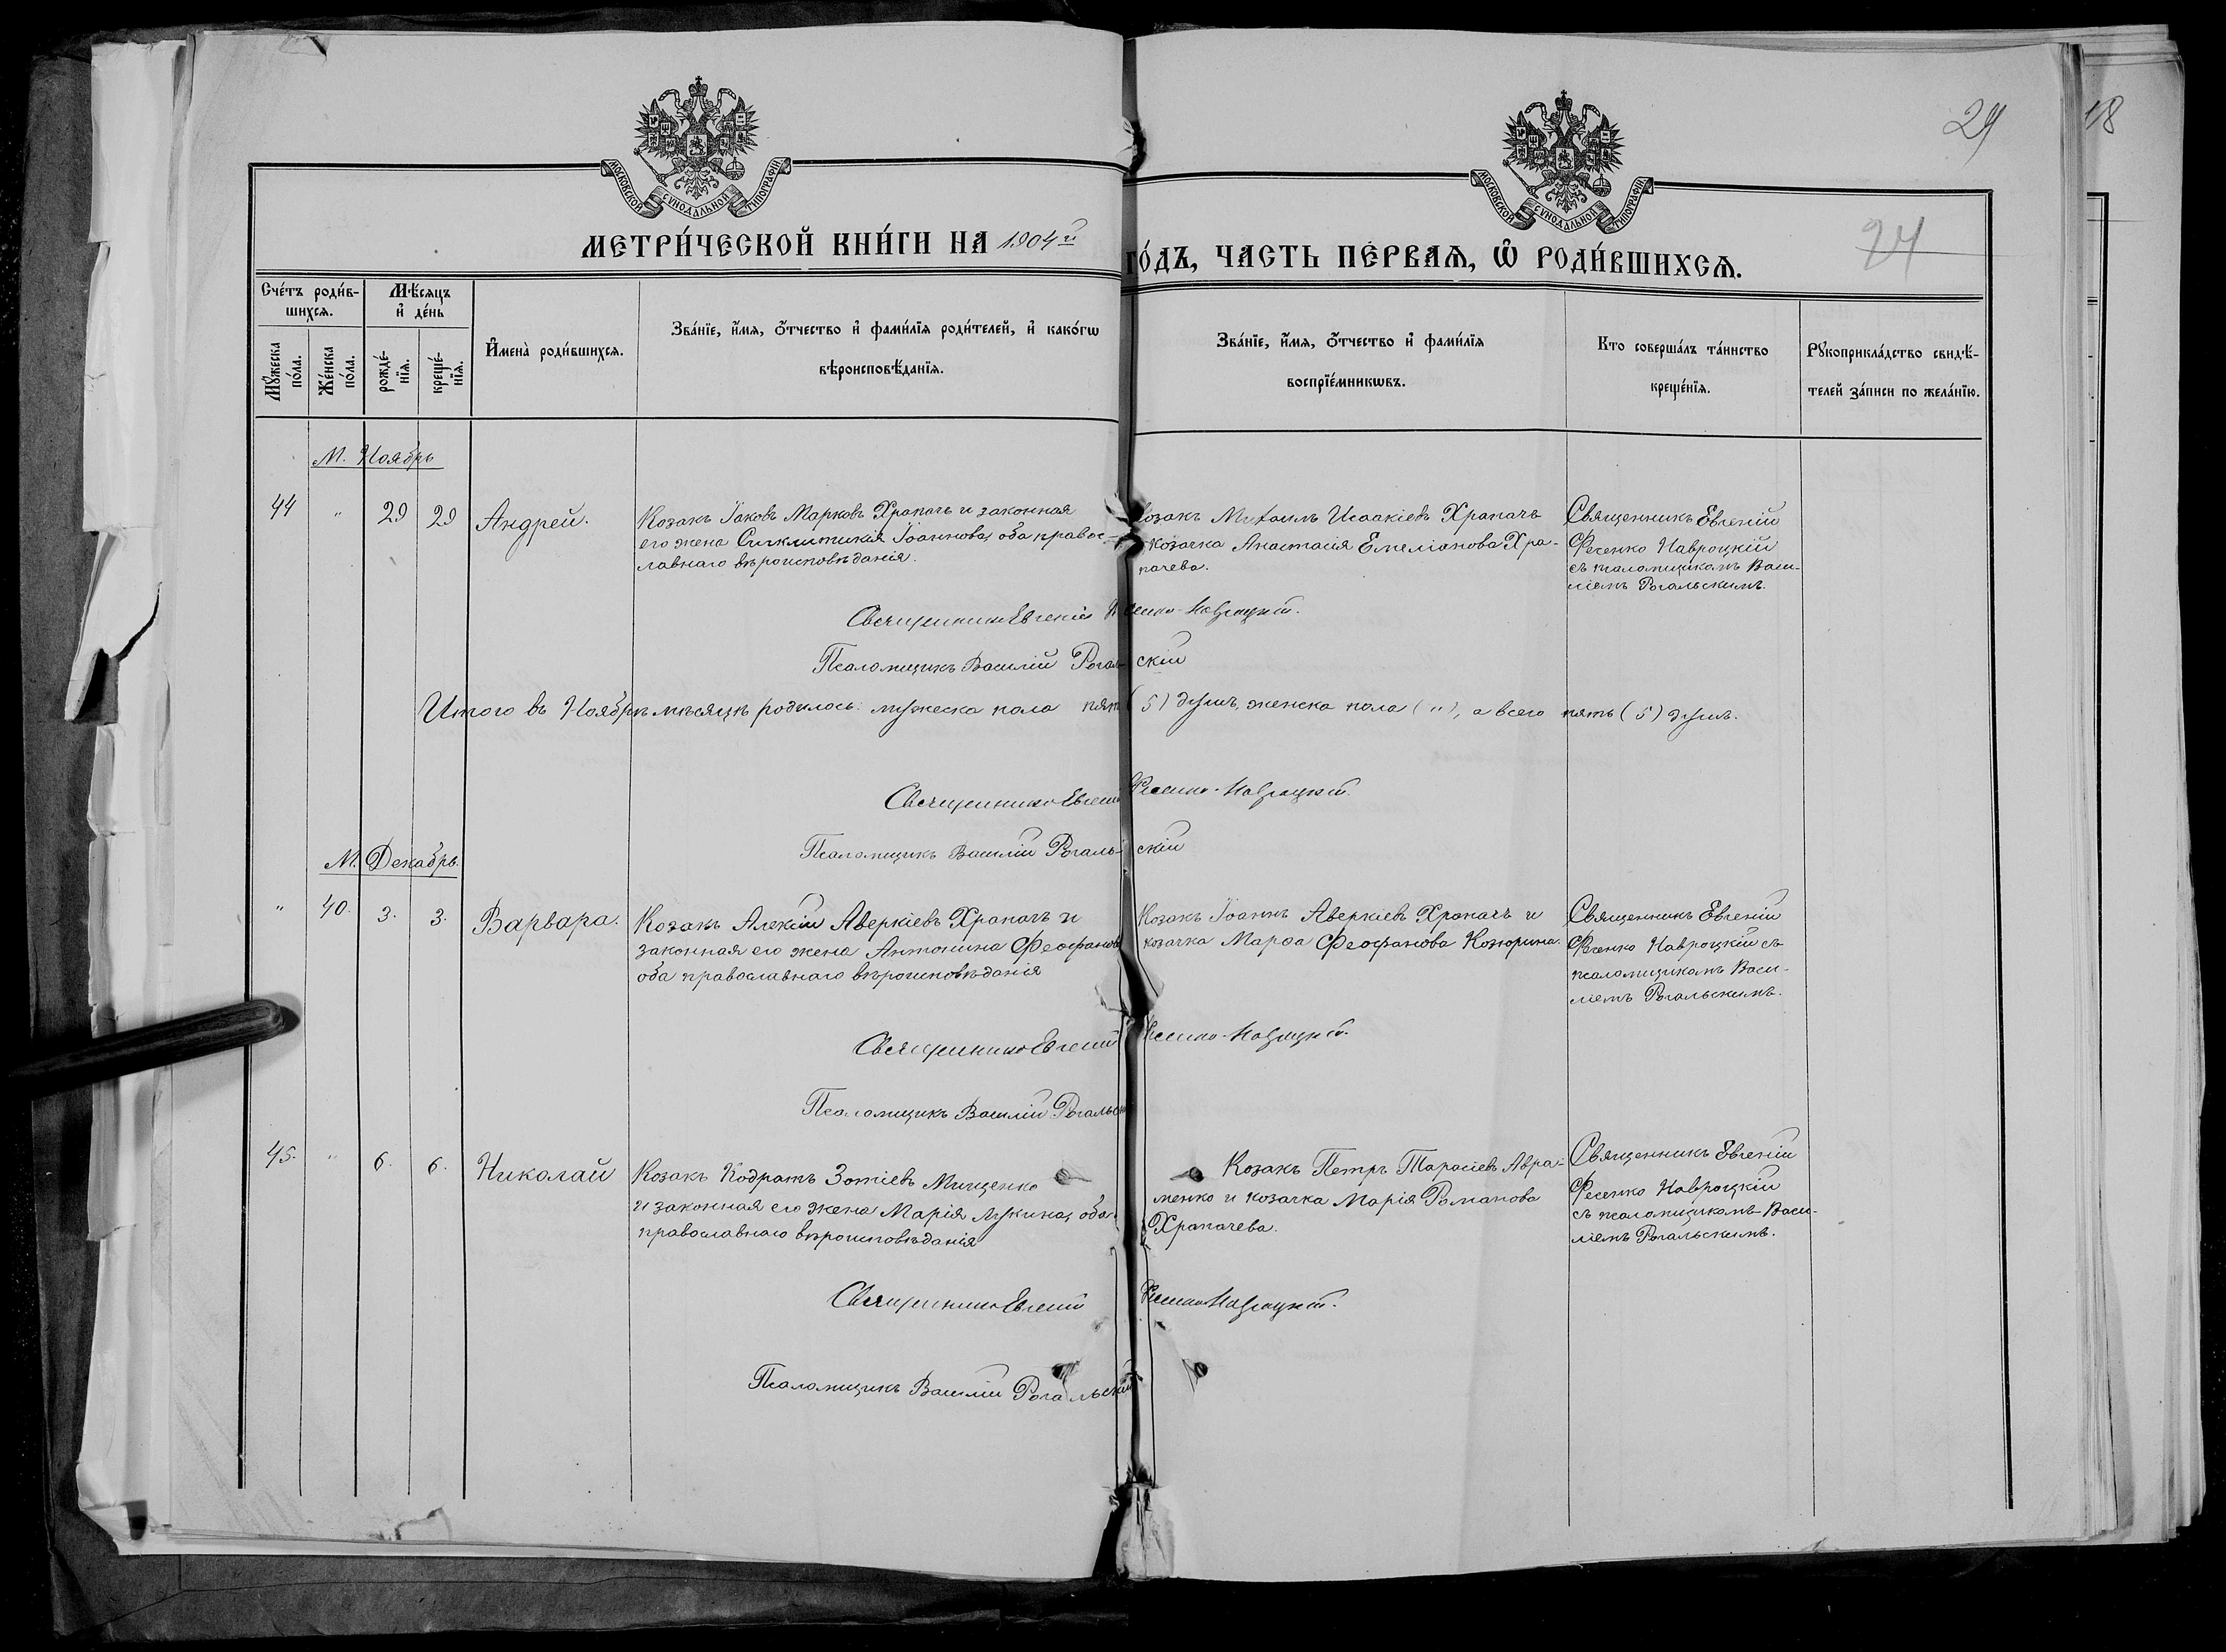 29
18
МОСКОВСКОЙ СѴНОДАЛЬНОЙ ТИПОГРАФІИ
МОСКОВСКОЙ СѴНОДАЛЬНОЙ ТИПОГРАФІИ
24
МЕТРИ́ЧЕСКОЙ КНИ́ГИ НА 1904й
ГО́ДЪ, ЧАСТЬ ПЕ́РВАЯ, Ѽ РОДИ́ВШИХСЯ.
Сче́тъ роди́в-
шихся.
Мѣ́сяцъ
и҆ де́нь
Му́жеска
по́ла.
Же́нска
по́ла.
рожде́-
нїѧ.
креще́-
нїѧ.
И҆мена̀ роди́вшихся.
Зва́нїе, и҆́мя, ѻ҆́тчество и҆ фами́лїя роди́телей, и҆ како́гѡ
вѣроисповѣ́данїя.
Зва́нїе, и҆́мя, ѻ҆́тчество и҆ фами́лїя
воспрїе́мникѡвъ.
Кто совершáлъ тáинство
креще́нїя.
Рꙋкоприклáдство свидѣ́-
телей зáписи по желáнїю.
М. Ноябрь
44 " 29 29 Андрей.
Козакъ Іаковъ Марковъ Храпачъ и законная
его жена Синклитикія Іоаннова, оба правос-
лавнаго вѣроисповѣданія.
Козакъ Михаилъ Исаакіевъ Храпачъ
козачка Анастасія Емеліанова Хра-
пачева.
Священникъ Евгеній
Фесенко Навроцкій
съ псаломщикомъ Васи-
ліемъ Рогальскимъ.
Священникъ Евгеній Фесенко-Навроцкій.
Псаломщикъ Василій Рогальскій
Итого въ Ноябрѣ мѣсяцѣ родилось: мужеска пола пять (5) душъ, женска пола ("), а всего пять (5) душъ.
Священникъ Евгеній Фесенко-Навроцкій.
Псаломщикъ Василій Рогальскій
М. Декабрь.
" 40. 3. 3. Варвара.
Козакъ Алексій Аверкіевъ Храпачъ и
законная его жена Антонина Феофанова
оба православнаго вѣроисповѣданія
Козакъ Іоаннъ Аверкіевъ Храпачъ и
козачка Марфа Феофанова Козюрина.
Священникъ Евгеній
Фесенко Навроцкій съ
псаломщикомъ Васи-
ліемъ Рогальскимъ.
Священникъ Евгеній Фесенко-Навроцкій.
Псаломщикъ Василій Рогальскій
45. " 6. 6. Николай
Козакъ Кодратъ Зотіевъ Мищенко
и законная его жена Марія Лукина, оба
православнаго вѣроисповѣданія
Козакъ Петръ Тарасіевъ Авра-
менко и козачка Марія Романова
Храпачева.
Священникъ Евгеній
Фесенко Навроцкій
съ псаломщикомъ Васи-
ліемъ Рогальскимъ.
Священникъ Евгеній Фесенко Навроцкій.
Псаломщикъ Василій Рогальскій